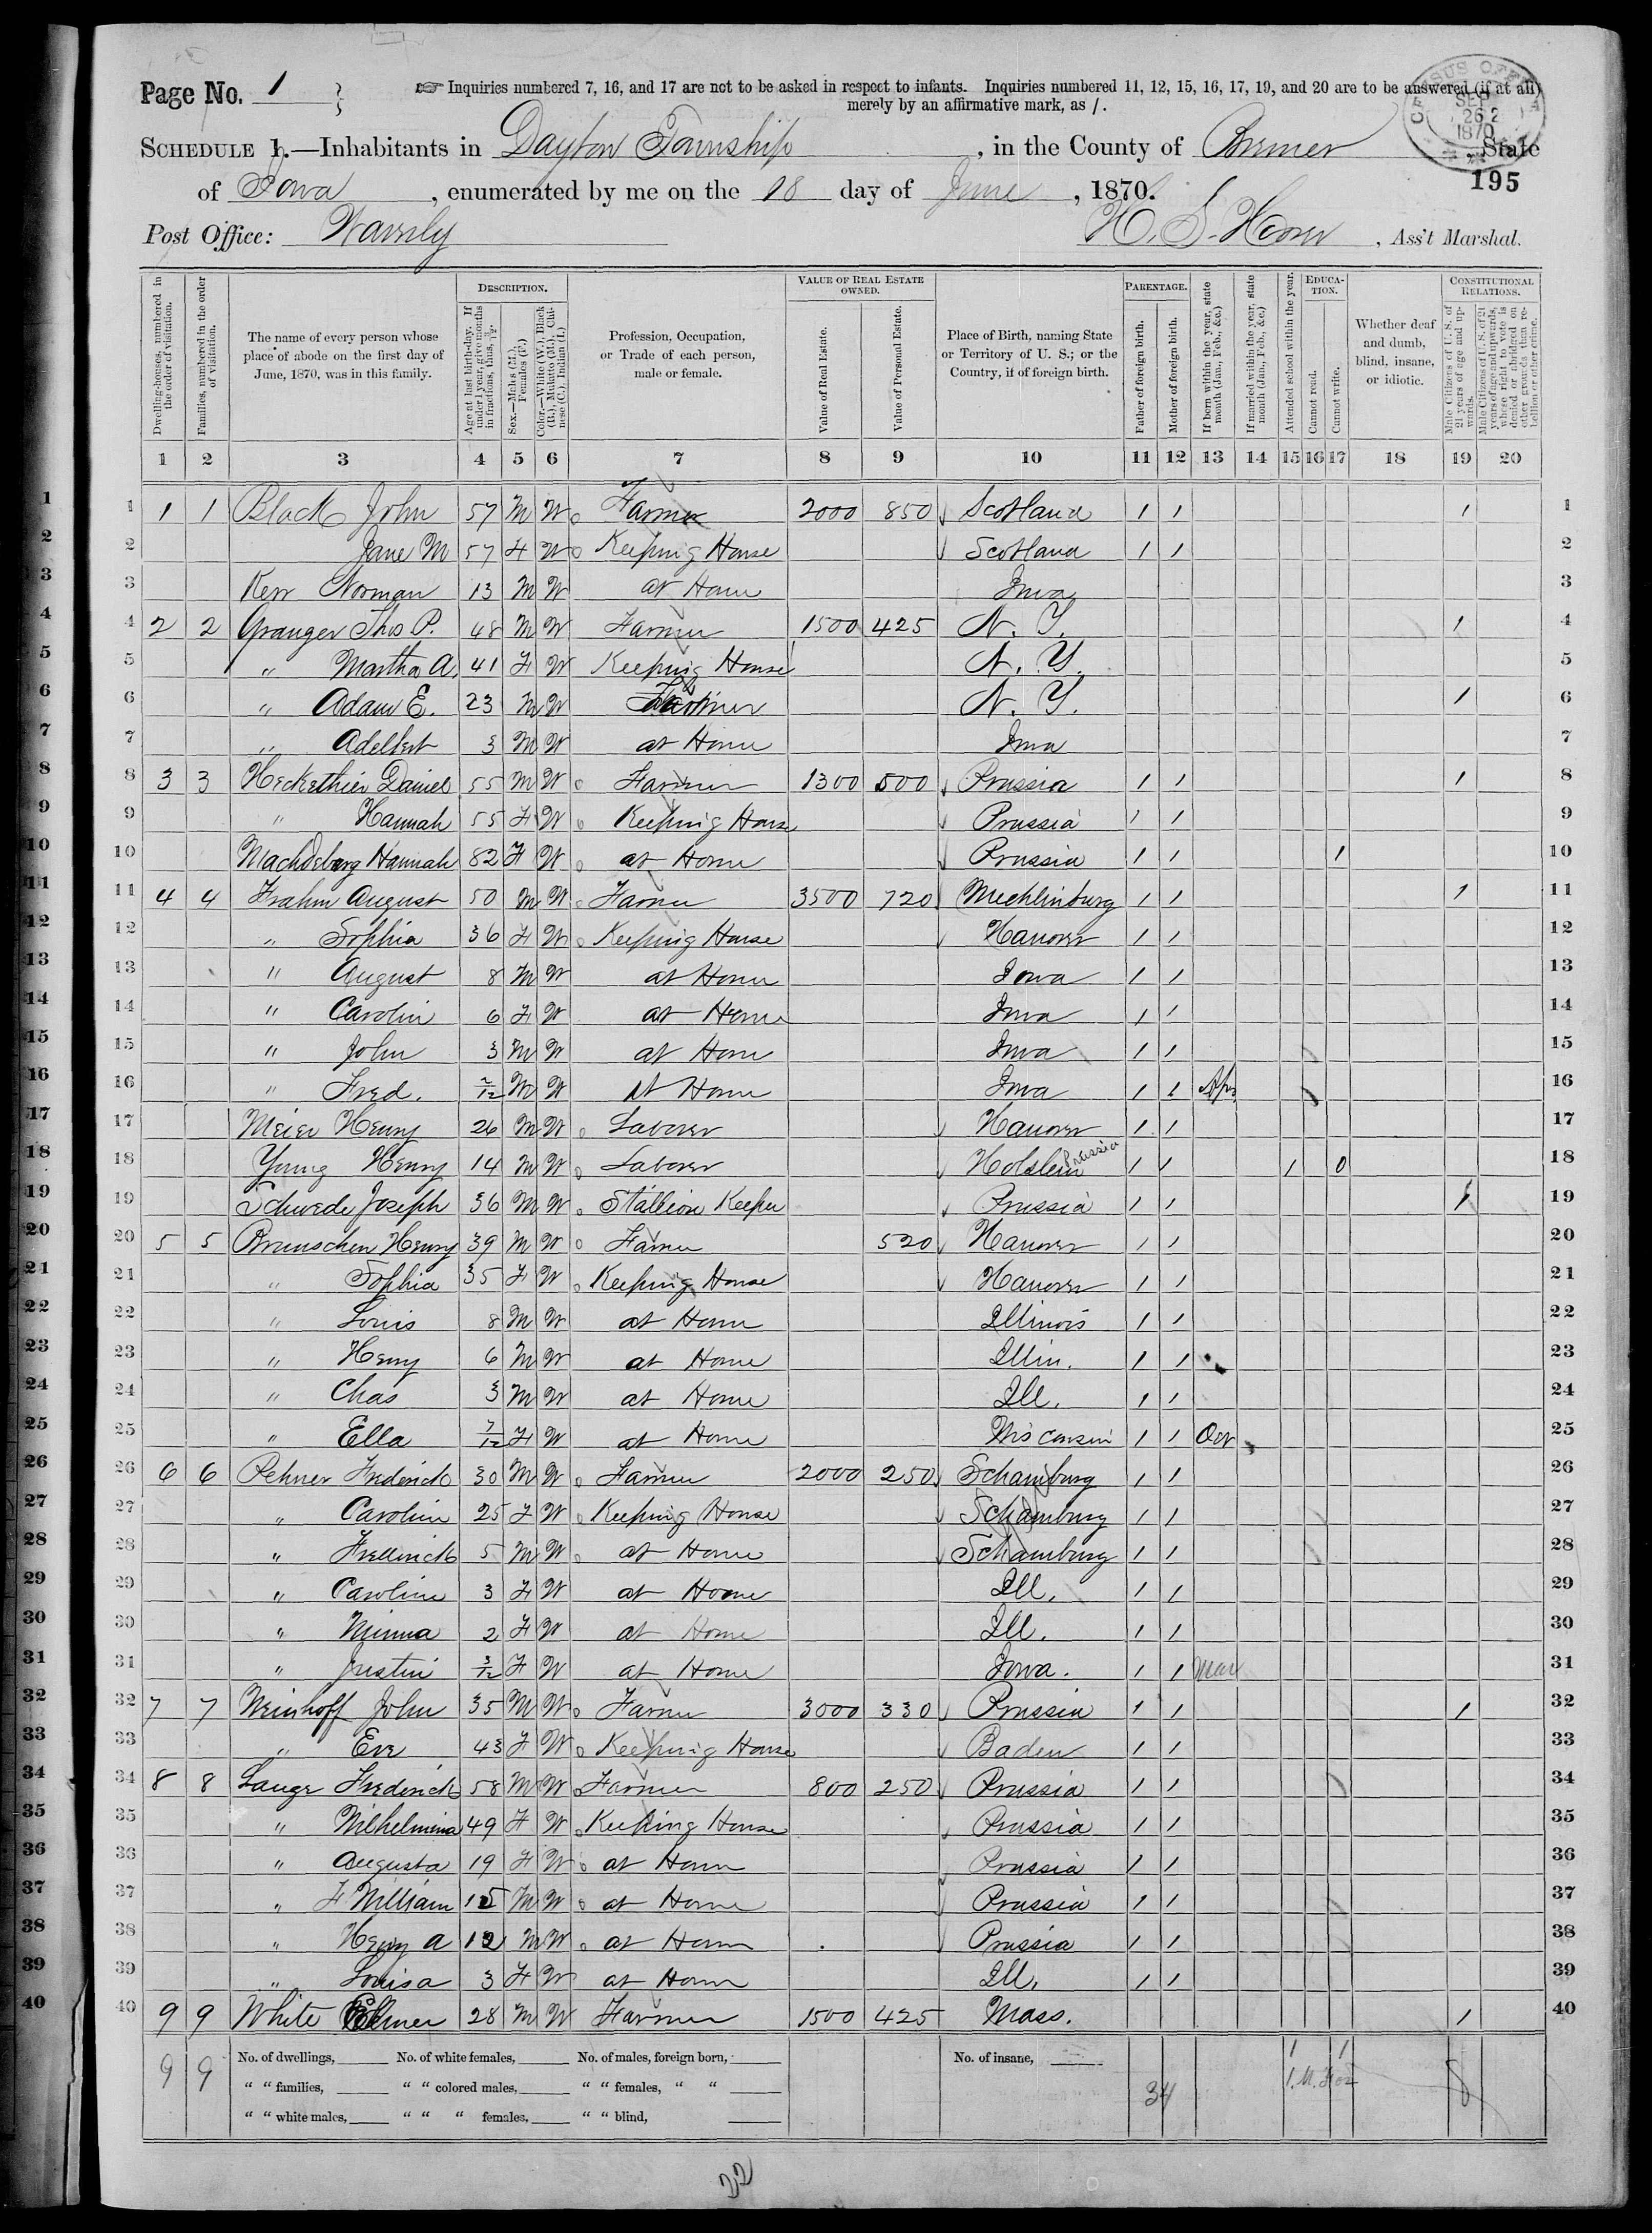 Page No. 1
☞ Inquiries numbered 7, 16, and 17 are not to be asked in respect to infants. Inquiries numbered 11, 12, 15, 16, 17, 19, and 20 are to be answered (if at all)
merely by an affirmative mark, as /.
SCHEDULE 1.—Inhabitants in Dayton Township, in the County of Bremer, State
of Iowa, enumerated by me on the 18 day of June, 1870.
195
CENSUS OFFICE SEP 26 1870
Post Office: Waverly
H. S. Hoover, Ass't Marshal.
Dwelling-houses, numbered in the order of visitation.
Families, numbered in the order of visitation.
The name of every person whose place of abode on the first day of June, 1870, was in this family.
DESCRIPTION.
Age at last birth-day. If under 1 year, give months in fractions, thus, 3/12.
Sex.—Males (M.), Females (F.)
Color.—White (W.), Black (B.), Mulatto (M.), Chinese (C.), Indian (I.)
Profession, Occupation, or Trade of each person, male or female.
VALUE OF REAL ESTATE OWNED.
Value of Real Estate.
Value of Personal Estate.
Place of Birth, naming State or Territory of U. S.; or the Country, if of foreign birth.
PARENTAGE.
Father of foreign birth.
Mother of foreign birth.
If born within the year, state month (Jan., Feb., &c.)
If married within the year, state month (Jan., Feb., &c.)
Attended school within the year.
EDUCATION.
Cannot read.
Cannot write.
Whether deaf and dumb, blind, insane, or idiotic.
CONSTITUTIONAL RELATIONS.
Male Citizens of U. S. of 21 years of age and upwards.
Male Citizens of U. S. of 21 years of age and upwards, whose right to vote is denied or abridged on other grounds than rebellion or other crime.
1 2 3 4 5 6 7 8 9 10 11 12 13 14 15 16 17 18 19 20
1 1 1 Black John 57 M W Farmer 2000 850 Scotland / / / 1
2 Jane M 57 F W Keeping House Scotland / / 2
3 Kerr Norman 13 M W at Home Iowa 3
4 2 2 Granger Thos P. 48 M W Farmer 1500 425 N. Y. / 4
5 " Martha A. 41 F W Keeping House N. Y. 5
6 " Adam E. 23 M W Farmer N. Y. / 6
7 " Adelbert 3 M W at Home Iowa 7
8 3 3 Heckethier Daniel 55 M W Farmer 1300 500 Prussia / / / 8
9 " Hannah 55 F W Keeping House Prussia / / 9
10 Hannah 82 F W at Home Prussia / / / 10
11 4 4 Frahm August 50 M W Farmer 3500 720 Mechlinburg / / / 11
12 " Sophia 36 F W Keeping House Hanover / / 12
13 " August 8 M W at Home Iowa / / 13
14 " Carolin 6 F W at Home Iowa / / 14
15 " John 3 M W at Home Iowa / / 15
16 " Fred. 2/12 M W at Home Iowa / / Apr 16
17 Meier Henry 26 M W Laborer Hanover / / 17
18 Young Henry 14 M W Laborer Holstein Prussia / / / 0 18
19 Schwede Joseph 36 M W Stallion Keeper Prussia / / / 19
20 5 5 Brunschen Henry 39 M W Farmer 520 Hanover / / 20
21 " Sophia 35 F W Keeping House Hanover / / 21
22 " Louis 8 M W at Home Illinois / / 22
23 " Henry 6 M W at Home Illin. / / 23
24 " Chas 3 M W at Home Ill. / / 24
25 " Ella 7/12 F W at Home Wisconsin / / Oct 25
26 6 6 Pehner Frederick 30 M W Farmer 2000 250 Schamburg / / 26
27 " Caroline 25 F W Keeping House Schamburg / / 27
28 " Frederick 5 M W at Home Schamburg / / 28
29 " Caroline 3 F W at Home Ill. / / 29
30 " Minna 2 F W at Home Ill. / / 30
31 " Justin 3/12 F W at Home Iowa. / / Mar 31
32 7 7 Weinhoff John 35 M W Farmer 3000 330 Prussia / / / 32
33 " Eve 43 F W Keeping House Baden / / 33
34 8 8 Lange Frederick 58 M W Farmer 800 250 Prussia / / 34
35 " Wilhelmina 49 F W Keeping House Prussia / / 35
36 " Augusta 19 F W at Home Prussia / / 36
37 " F William 15 M W at Home Prussia / / 37
38 " Henry A 12 M W at Home Prussia / / 38
39 " Louisa 3 F W at Home Ill. / / 39
40 9 9 White Elmer 28 M W Farmer 1500 425 Mass. / 40
9 9 No. of dwellings, No. of white females, No. of males, foreign born, No. of insane, 34 1 1 8
" " families, " " colored males, " " females, " "
" " white males, " " " females, " " blind,
22